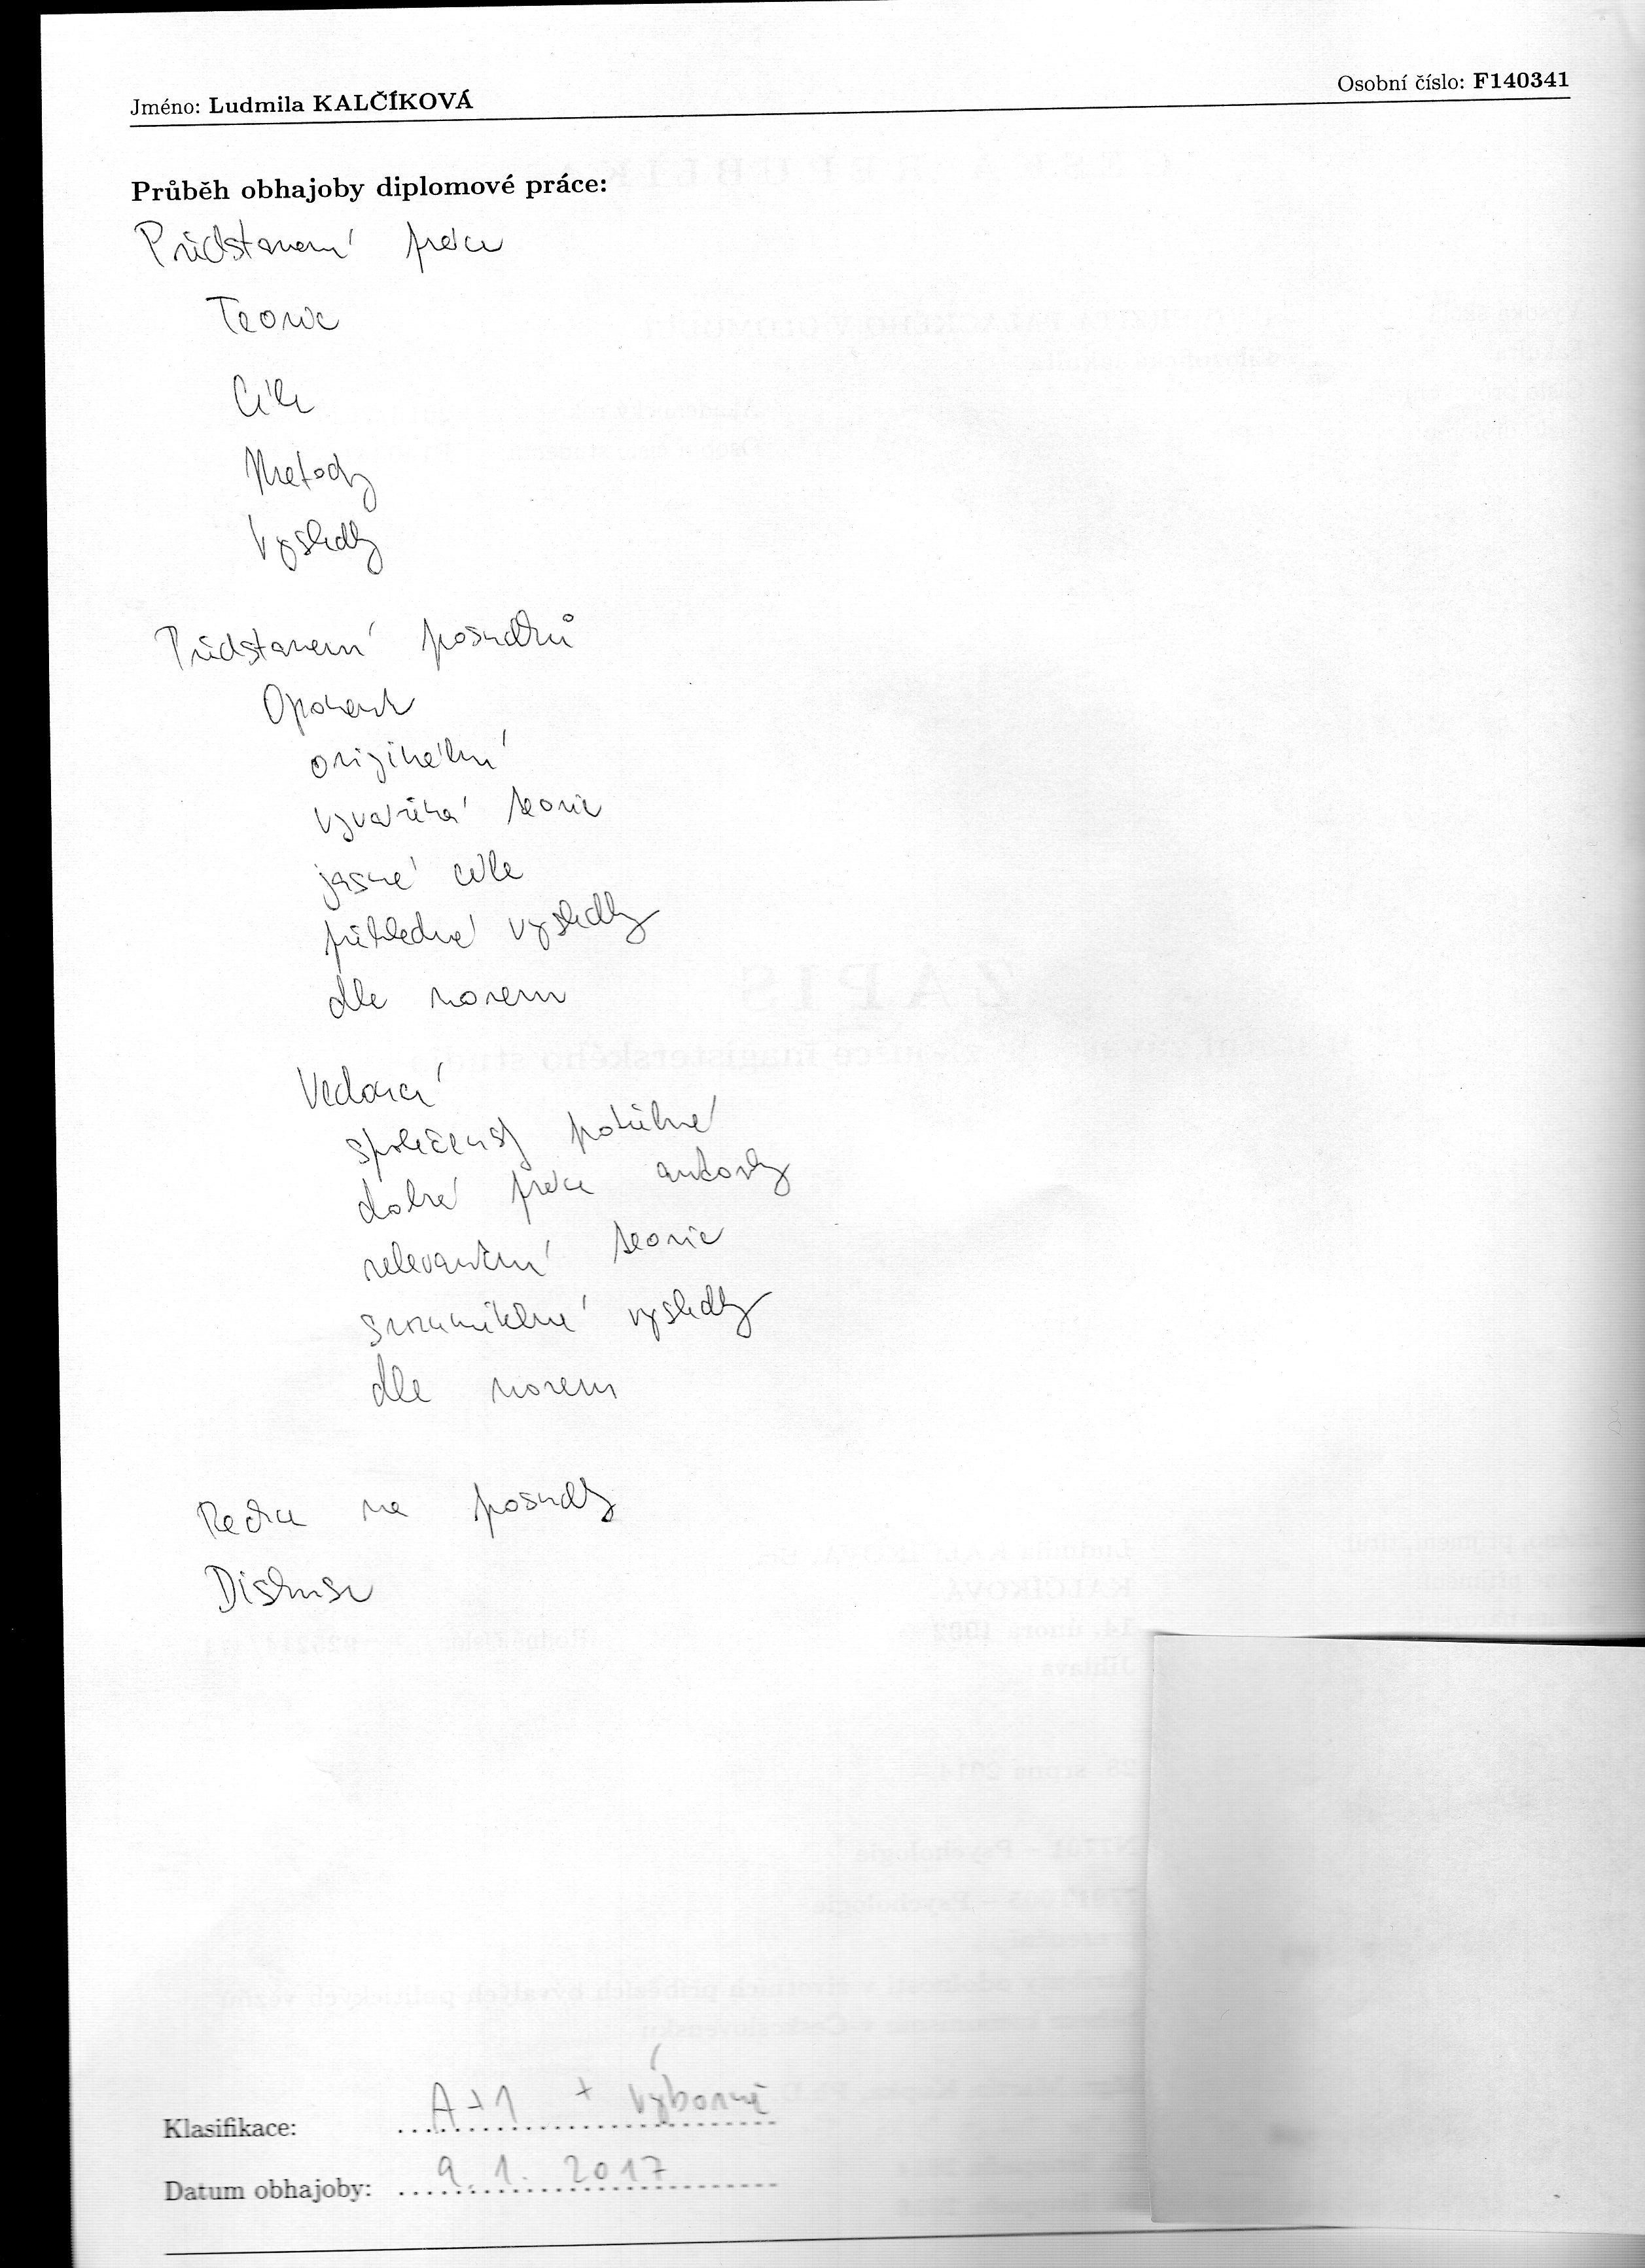 Jméno: Ludmila KALČÍKOVÁ
Osobní číslo: F140341
Průběh obhajoby diplomové práce:
Představení práce
Teorie
Cíle
Metody
Výsledky
Představení posudků
Oponent
originální
vyvážená teorie
jasné cíle
přehledné výsledky
dle norem
Vedoucí
společensky potřebné
dobré práce autorky
relevantní teorie
srozumitelné výsledky
dle norem
Reakce na posudky
Diskuse
Klasifikace: A - 1 - Výborně
Datum obhajoby: 9. 1. 2017